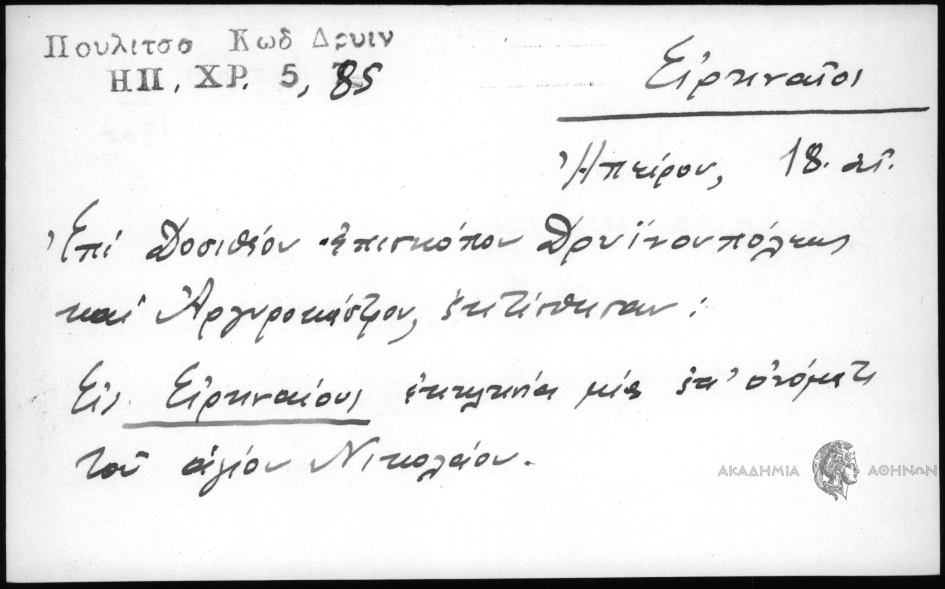 Πουλιτσα Κωδ Δρυιν
ΗΠ. ΧΡ. 5, 85
Εἰρηναῖοι
Ἠπείρου, 18. αἰ.
Ἐπί Δοσιθέου ἐπισκόπου Δρυϊνουπόλεως
καί Ἀργυροκάστρου, ἐκτίσθησαν:
Εἰς Εἰρηναίους ἐκκλησία μία ἐπ' ὀνόματι
τοῦ ἁγίου Νικολάου.
ΑΚΑΔΗΜΙΑ ΑΘΗΝΩΝ